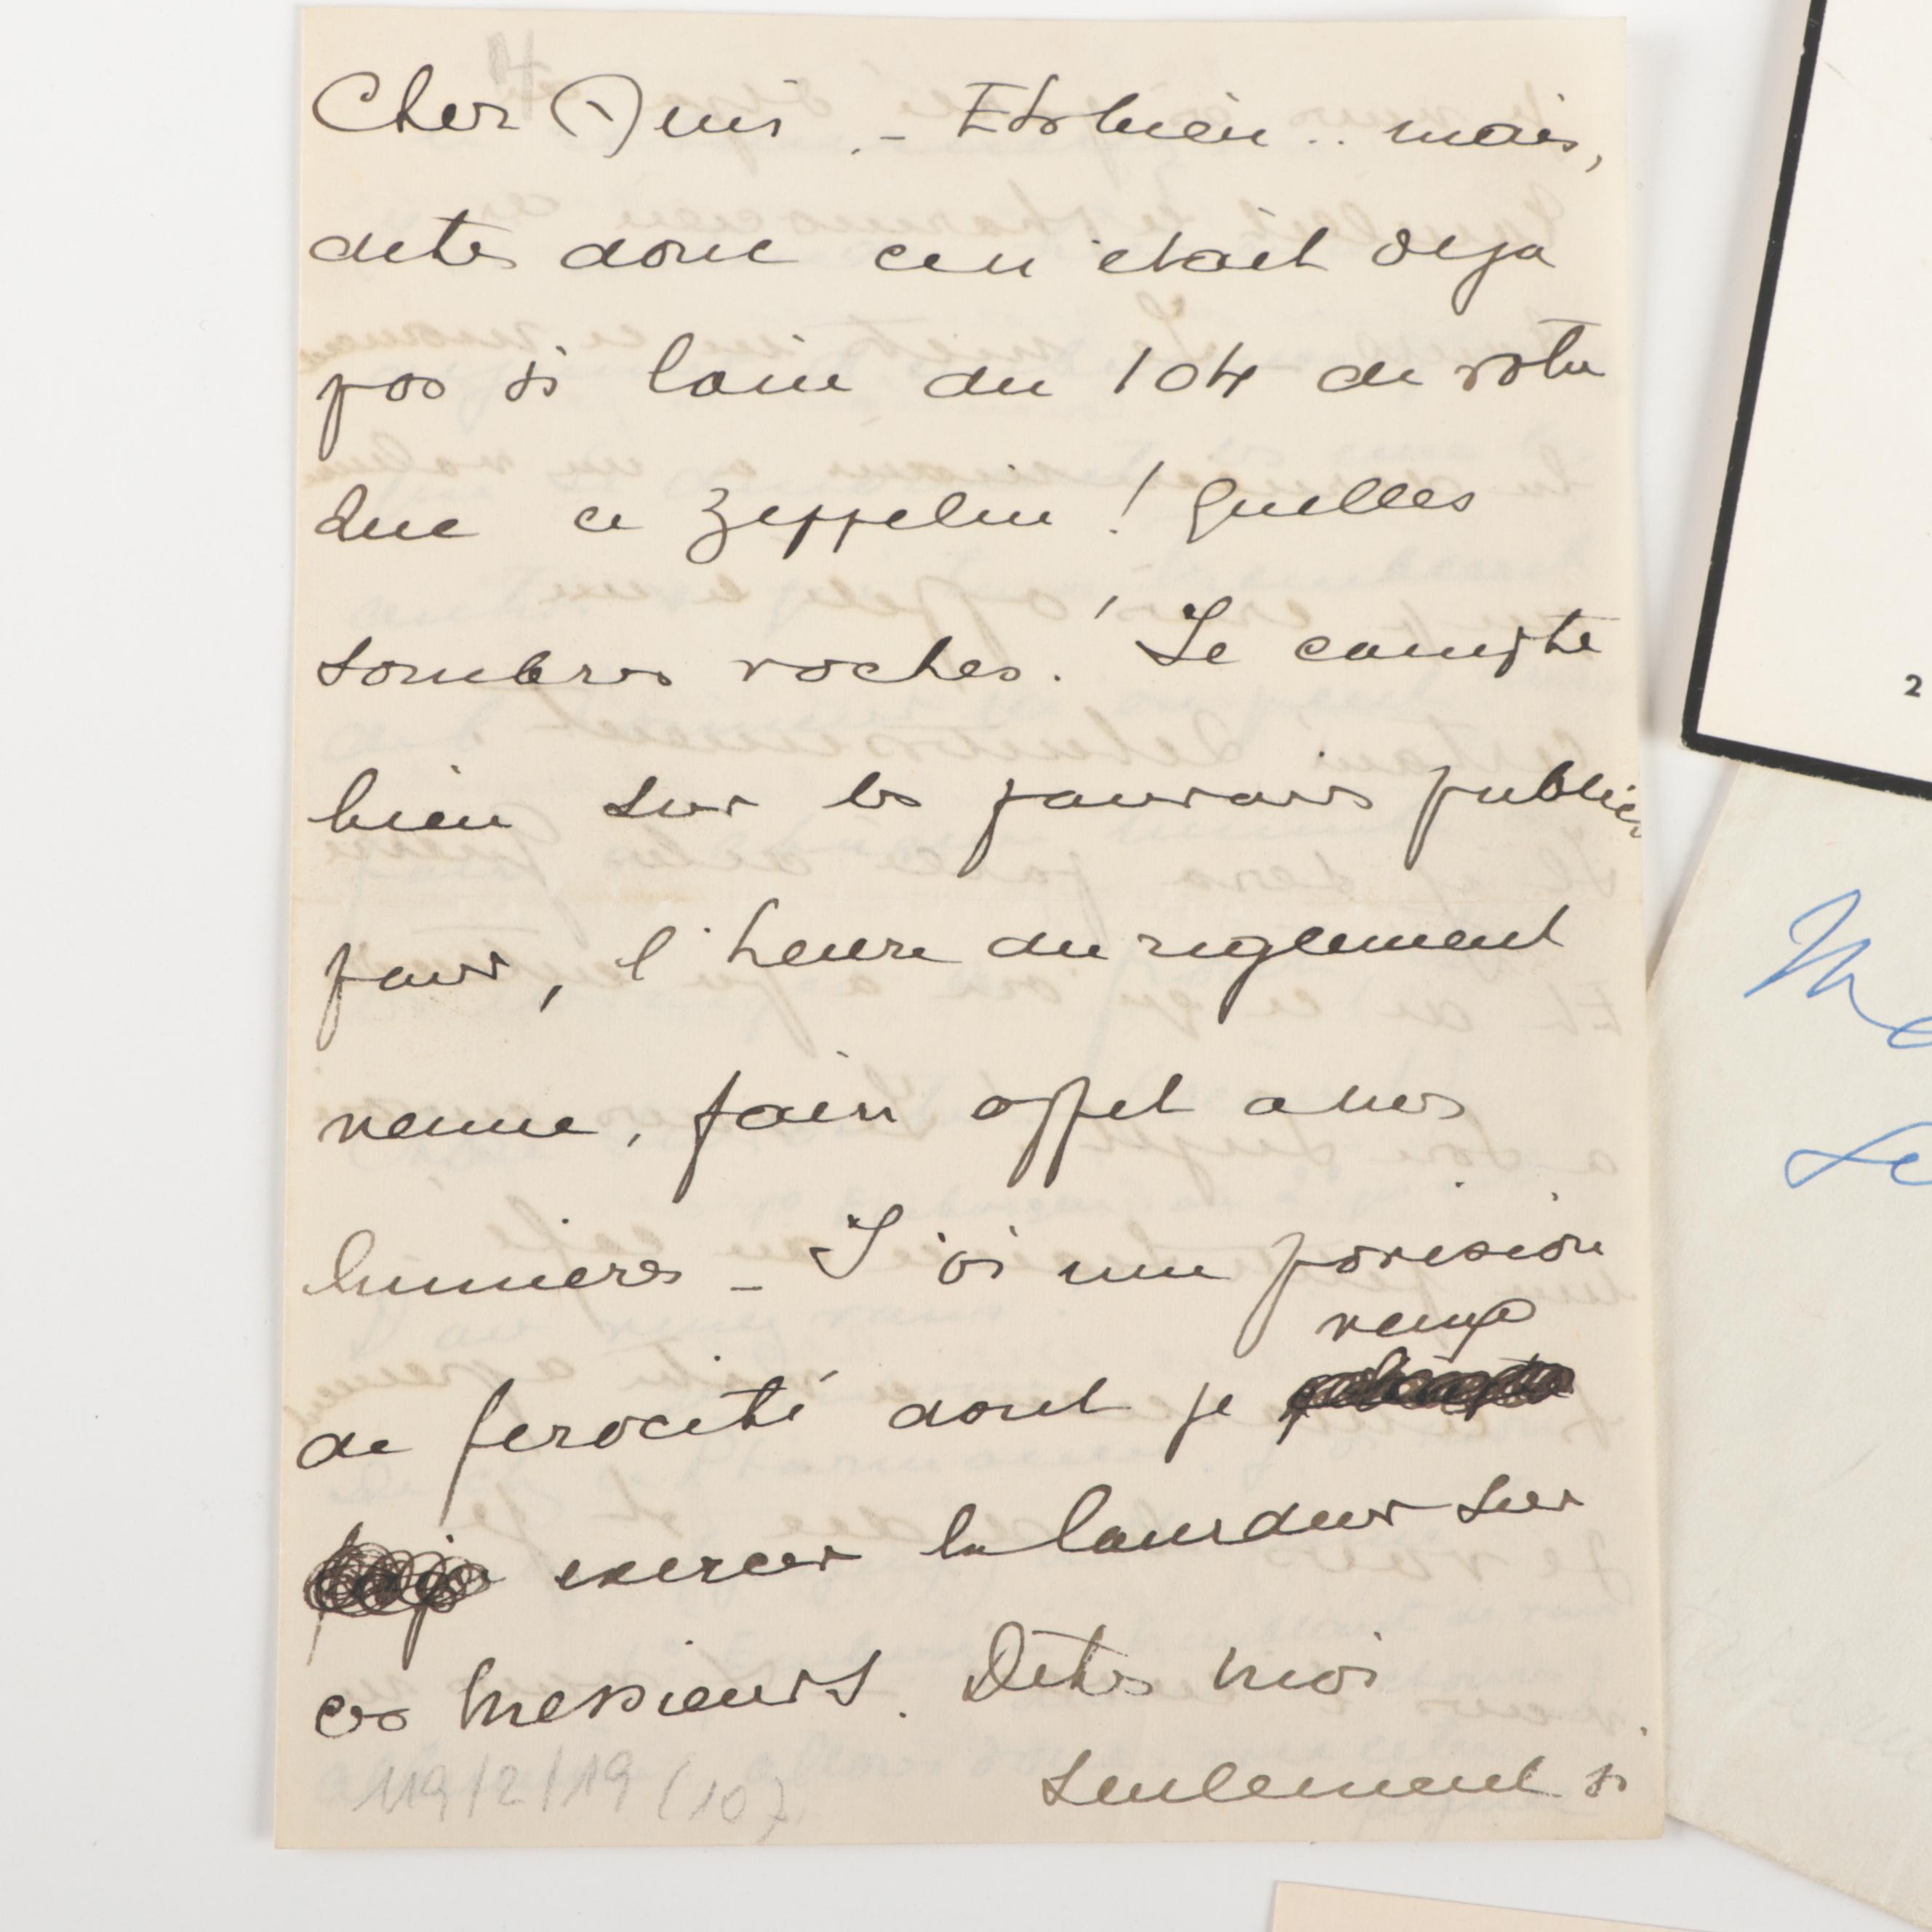 Cher Ami. - Eh bien.. mais,
dites donc ce n'etait deja
pas si loin du 104 de votre
due ce Zeppelin ! Quelles
sombres vaches ! Je compte
bien sur les pouvoirs publics
pour, l'heure du reglement
venue, faire appel a mes
lumieres - J'ai une provision
de ferocité dont je
veux
exercer la lourdeur sur
ces Messieurs. Dites moi
seulement si
119/2/19 (10)
2